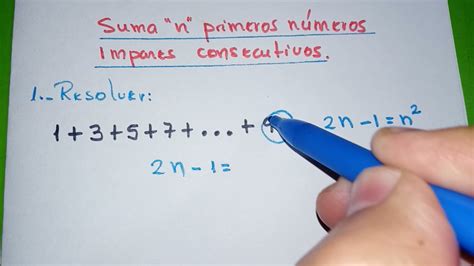 Suma "n" primeros números
Impares consecutivos.
1.- Resolver:
1+3+5+7+...+
2n-1=n²
2n-1=